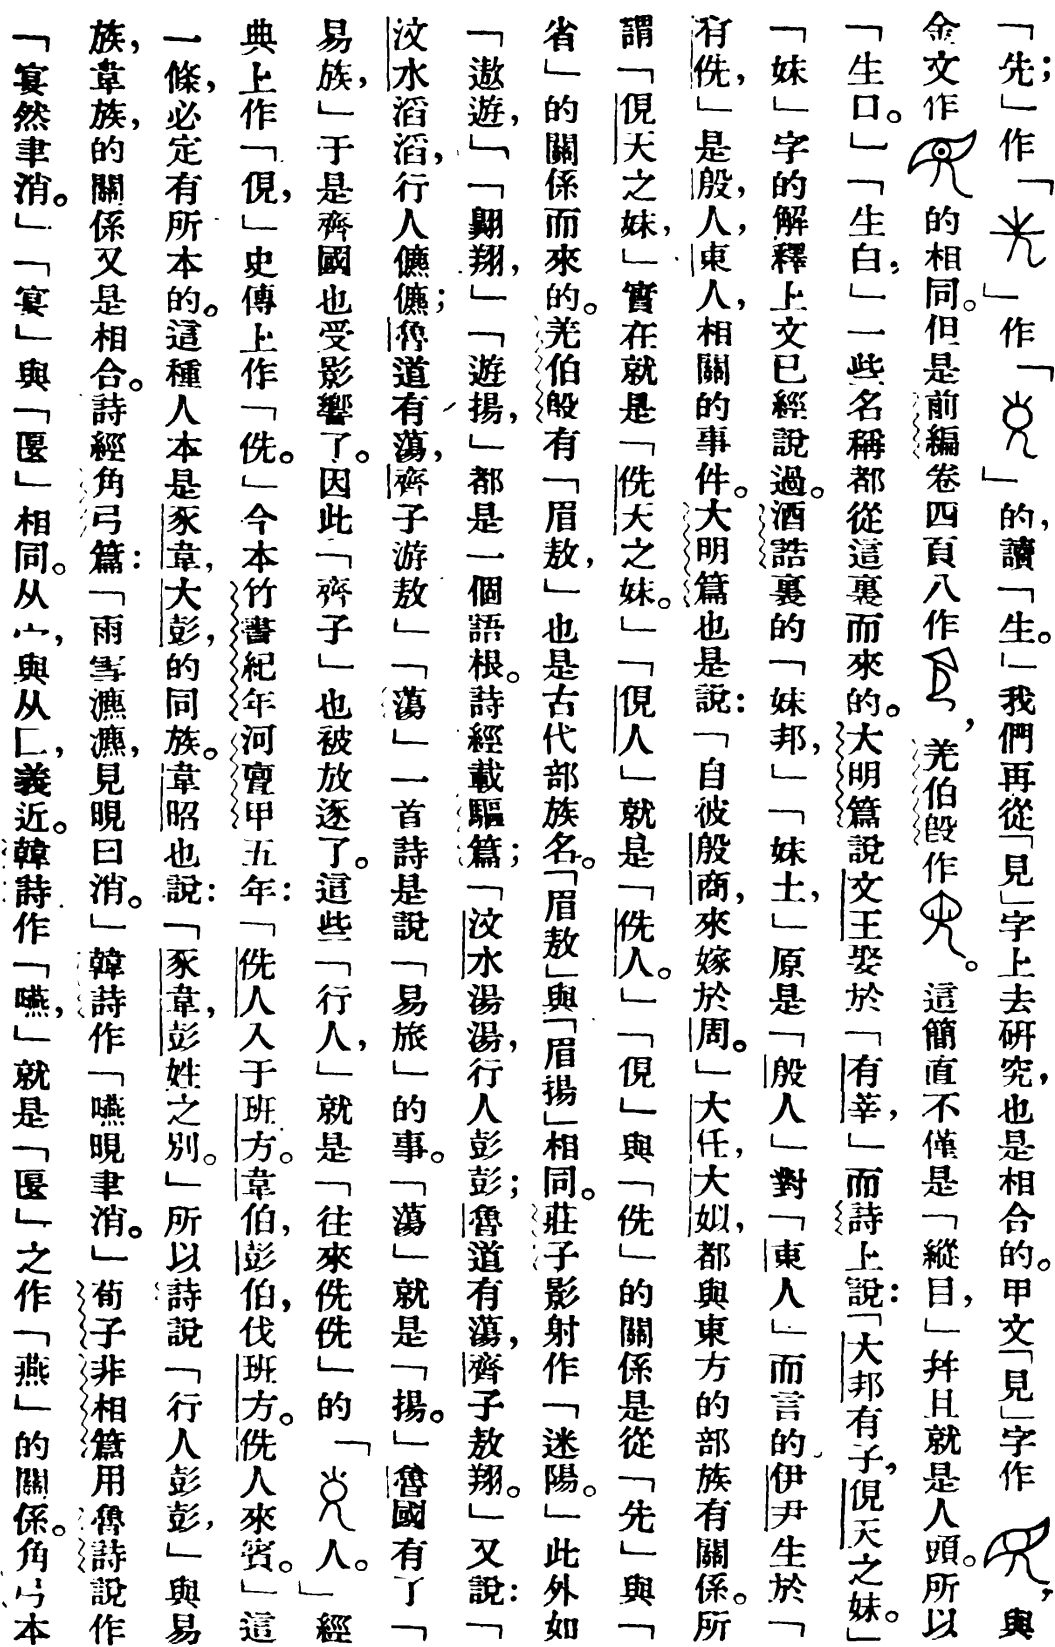 「先;」作「」作「」的,讀「生。」我們再從「見」字上去研究,也是相合的。甲文「見」字作,與
金文作的相同。但是前編卷四頁八作,羌伯𣪘作。這簡直不僅是「縱目,」幷且就是人頭。所以
「生口。」「生白,」一些名稱都從這裏而來的。大明篇說文王娶於「有莘,」而詩上說:「大邦有子,俔天之妹。」
「妹」字的解釋上文已經說過。酒誥裏的「妹邦,」「妹土,」原是「殷人」對「東人」而言的伊尹生於「
有侁,」是殷人,東人,相關的事件。大明篇也是說:「自彼殷商,來嫁於周。」大任,大姒,都與東方的部族有關係。所
謂「俔天之妹,」實在就是「侁天之妹。」「俔人」就是「侁人。」「俔」與「侁」的關係是從「先」與「
省」的關係而來的。羌伯𣪘有「眉敖,」也是古代部族名。「眉敖」與「眉揚」相同。莊子影射作「迷陽。」此外如
「遨遊,」「翺翔,」「遊揚,」都是一個語根。詩經載驅篇;「汶水湯湯,行人彭彭;魯道有蕩,齊子敖翔。」又說:「
汶水滔滔,行人儦儦;魯道有蕩,齊子游敖」「蕩」一首詩是說「易旅」的事。「蕩」就是「揚。」魯國有了「
易族,」于是齊國也受影響了。因此「齊子」也被放逐了。這些「行人,」就是「往來侁侁」的「人。」經
典上作「俔,」史傳上作「侁。」今本竹書紀年河亶甲五年:「侁人入于班方。韋伯,彭伯,伐班方。侁人來賓。」這
一條,必定有所本的。這種人本是豕韋,大彭,的同族。韋昭也說:「豕韋,彭姓之別。」所以詩說「行人彭彭,」與易
族,韋族,的關係又是相合。詩經角弓篇:「雨雪瀌瀌,見晛曰消。」韓詩作「嚥晛聿消。」荀子非相篇用魯詩說作
「宴然聿消。」「宴」與「匽」相同。从宀,與从匸,義近。韓詩作「嚥,」就是「匽」之作「燕」的關係。角弓本